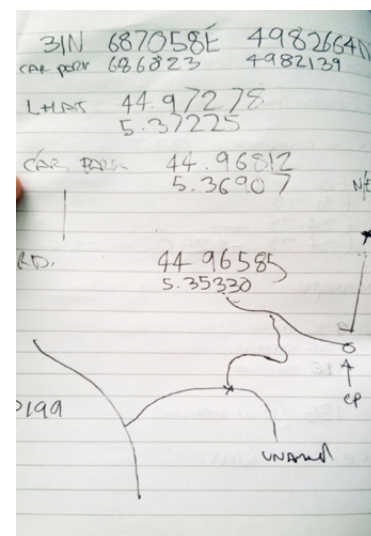 31N 687058E 4982664N
CAR PARK 686823 4982139
44.97278
5.37225
CAR PARK 44.96812
5.36907
N/E
RD. 44 96585
5.35330
CP
D199
UNAMED